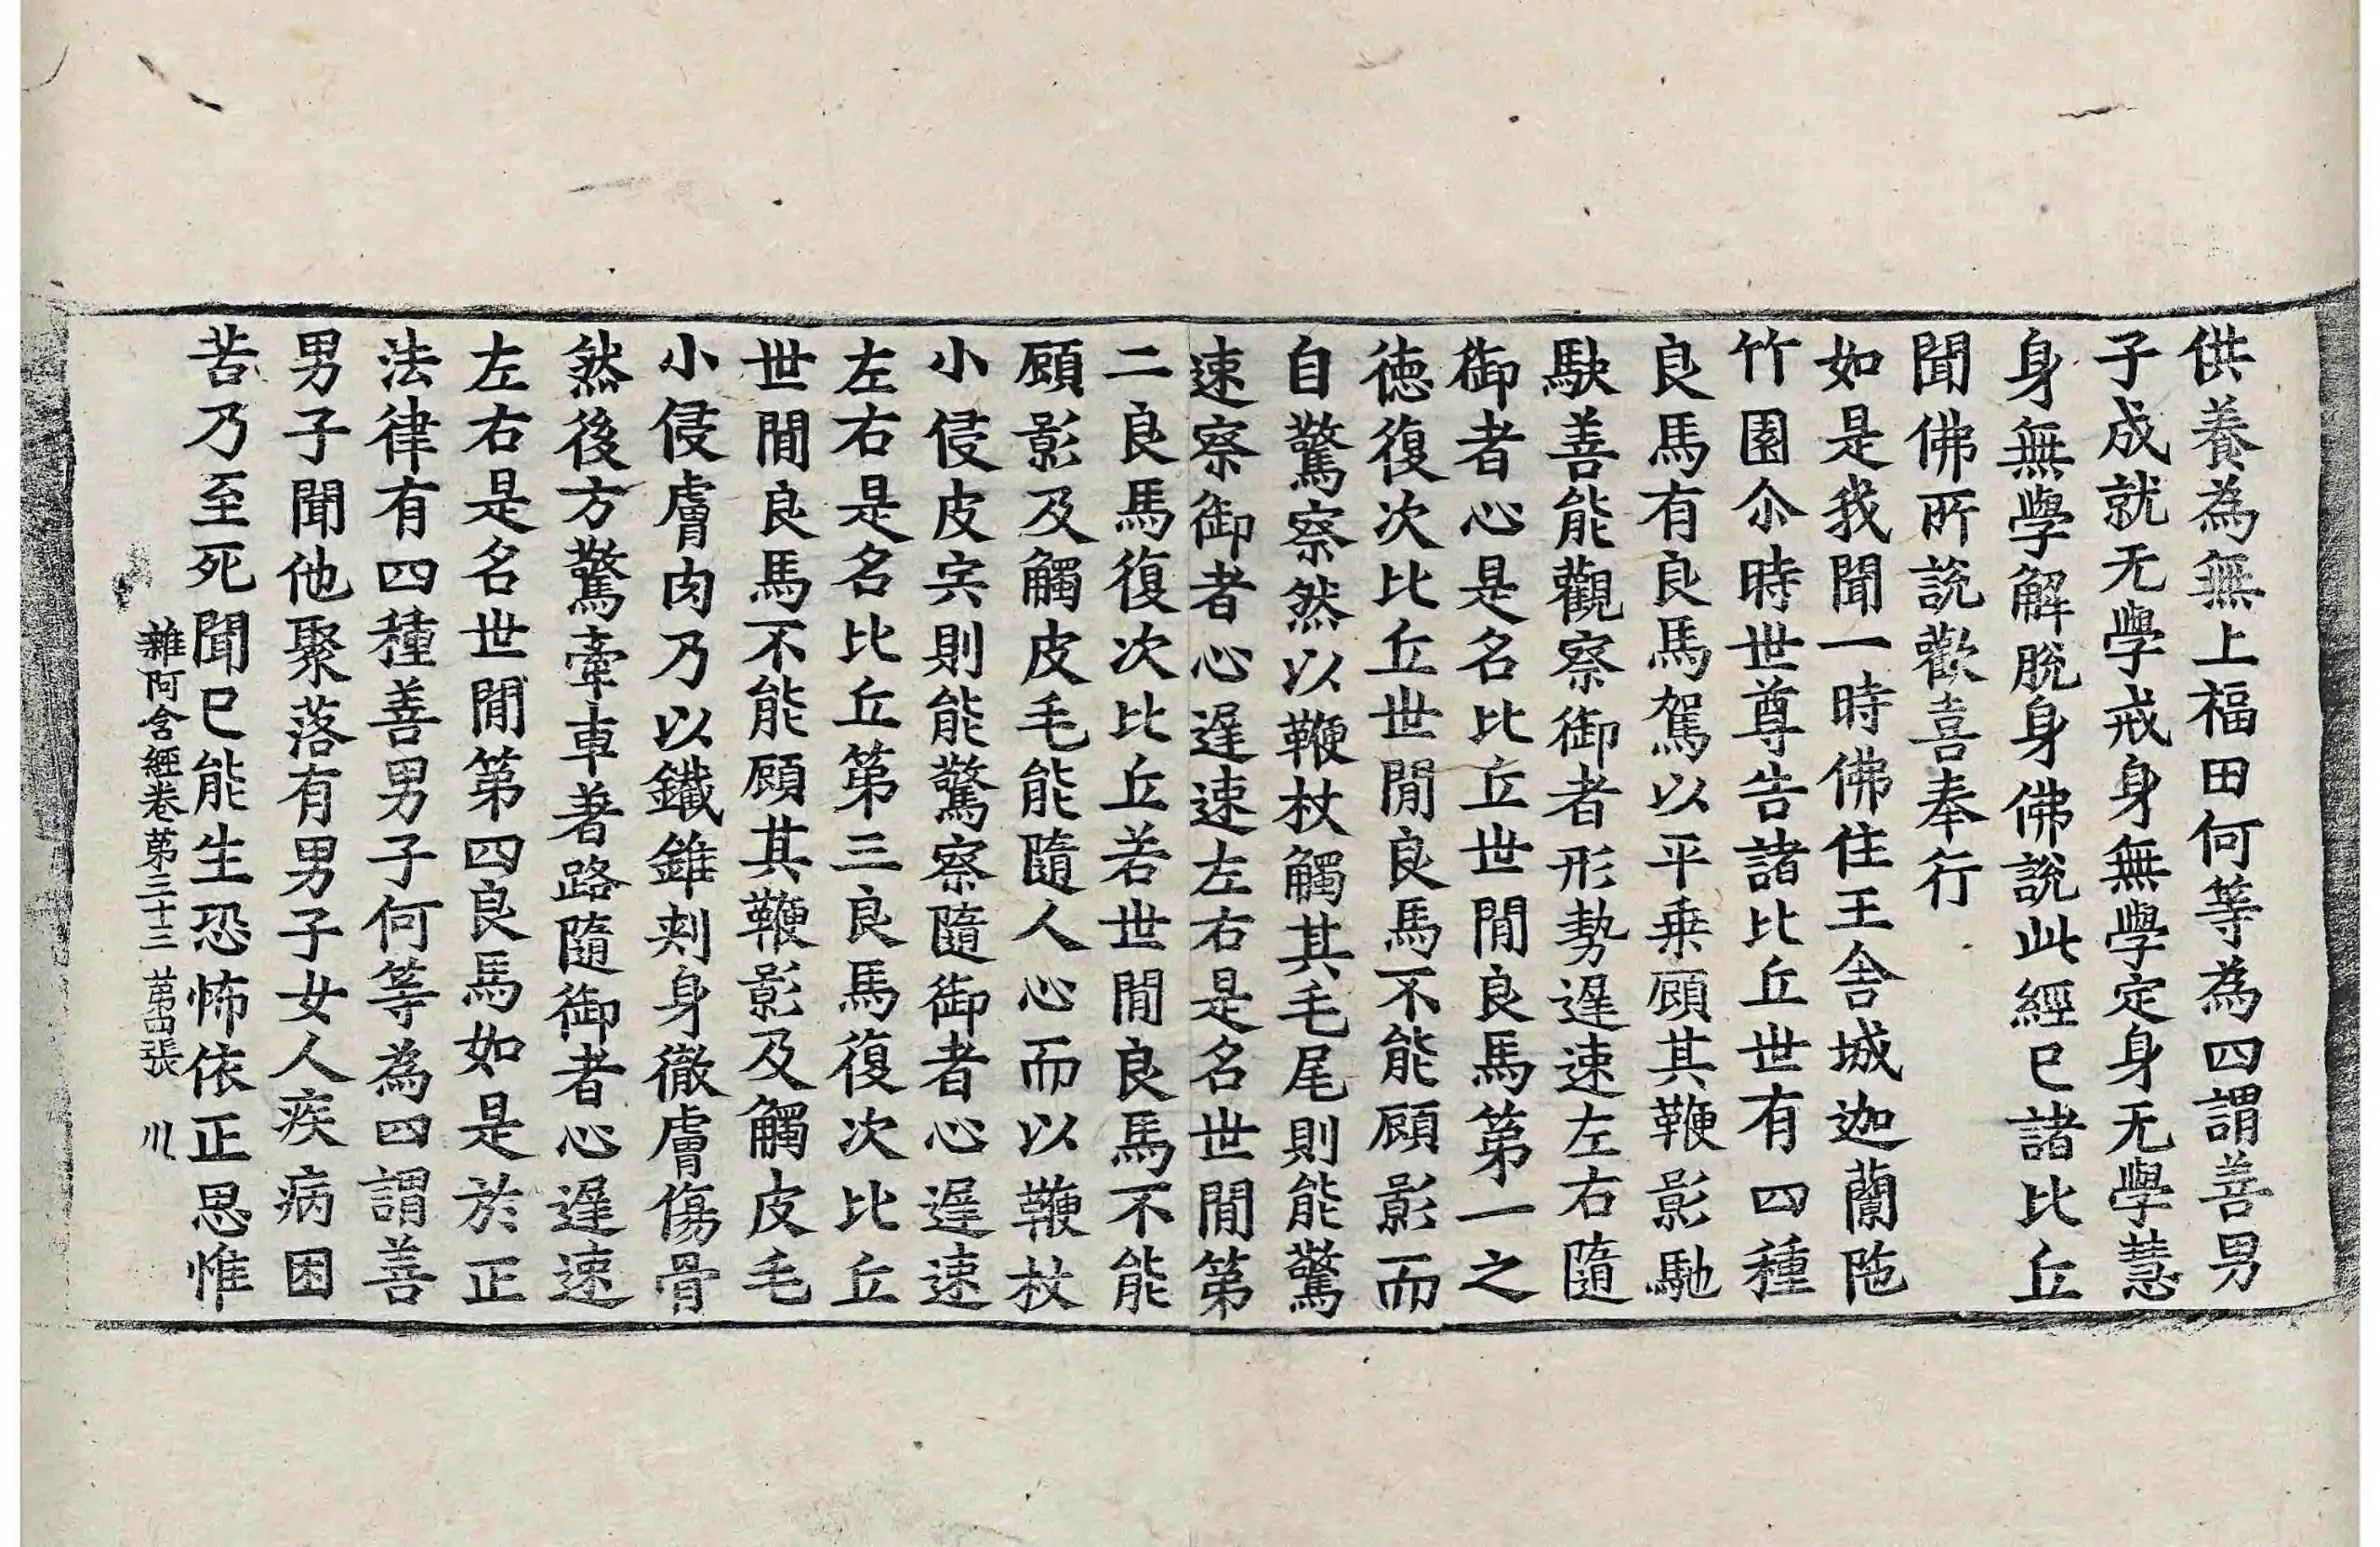 供養為無上福田何等為四謂善男
子成就无學戒身無學定身无學慧
身無學解脫身佛說此經已諸比丘
聞佛所說歡喜奉行
如是我聞一時佛住王舍城迦蘭陁
竹園尒時世尊告諸比丘世有四種
良馬有良馬駕以平乗顧其鞭影馳
駃善能觀察御者形勢遟速左右隨
御者心是名比丘世間良馬第一之
德復次比丘世間良馬不能顧影而
自驚察然以鞭杖觸其毛尾則能驚
速察御者心遟速左右是名世間第
二良馬復次比丘若世間良馬不能
顧影及觸皮毛能隨人心而以鞭杖
小侵皮宍則能驚察隨御者心遟速
左右是名比丘第三良馬復次比丘
世間良馬不能顧其鞭影及觸皮毛
小侵膚肉乃以鐵錐刾身徹膚傷骨
然後方驚牽車著路隨御者心遟速
左右是名世間第四良馬如是於正
法律有四種善男子何等為四謂善
男子聞他聚落有男子女人疾病困
苦乃至死聞已能生恐怖依正思惟
雜阿含經卷第三十三 第四張 川